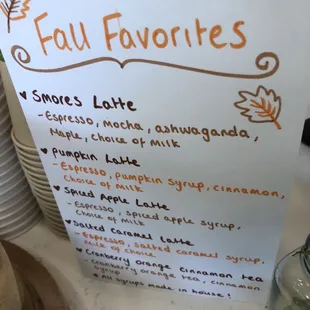 Fall Favorites
♥ Smores Latte
- Espresso, mocha, ashwaganda,
Maple, choice of milk
♥ Pumpkin Latte
- Espresso, pumpkin syrup, cinnamon,
choice of milk
♥ Spiced Apple Latte
- Espresso, spiced apple syrup,
choice of milk
♥ Salted caramel latte
- Espresso, salted caramel syrup,
milk of choice
♥ Cranberry orange cinnamon tea
- cranberry orange tea, cinnamon
syrup
♥ All syrups made in house!